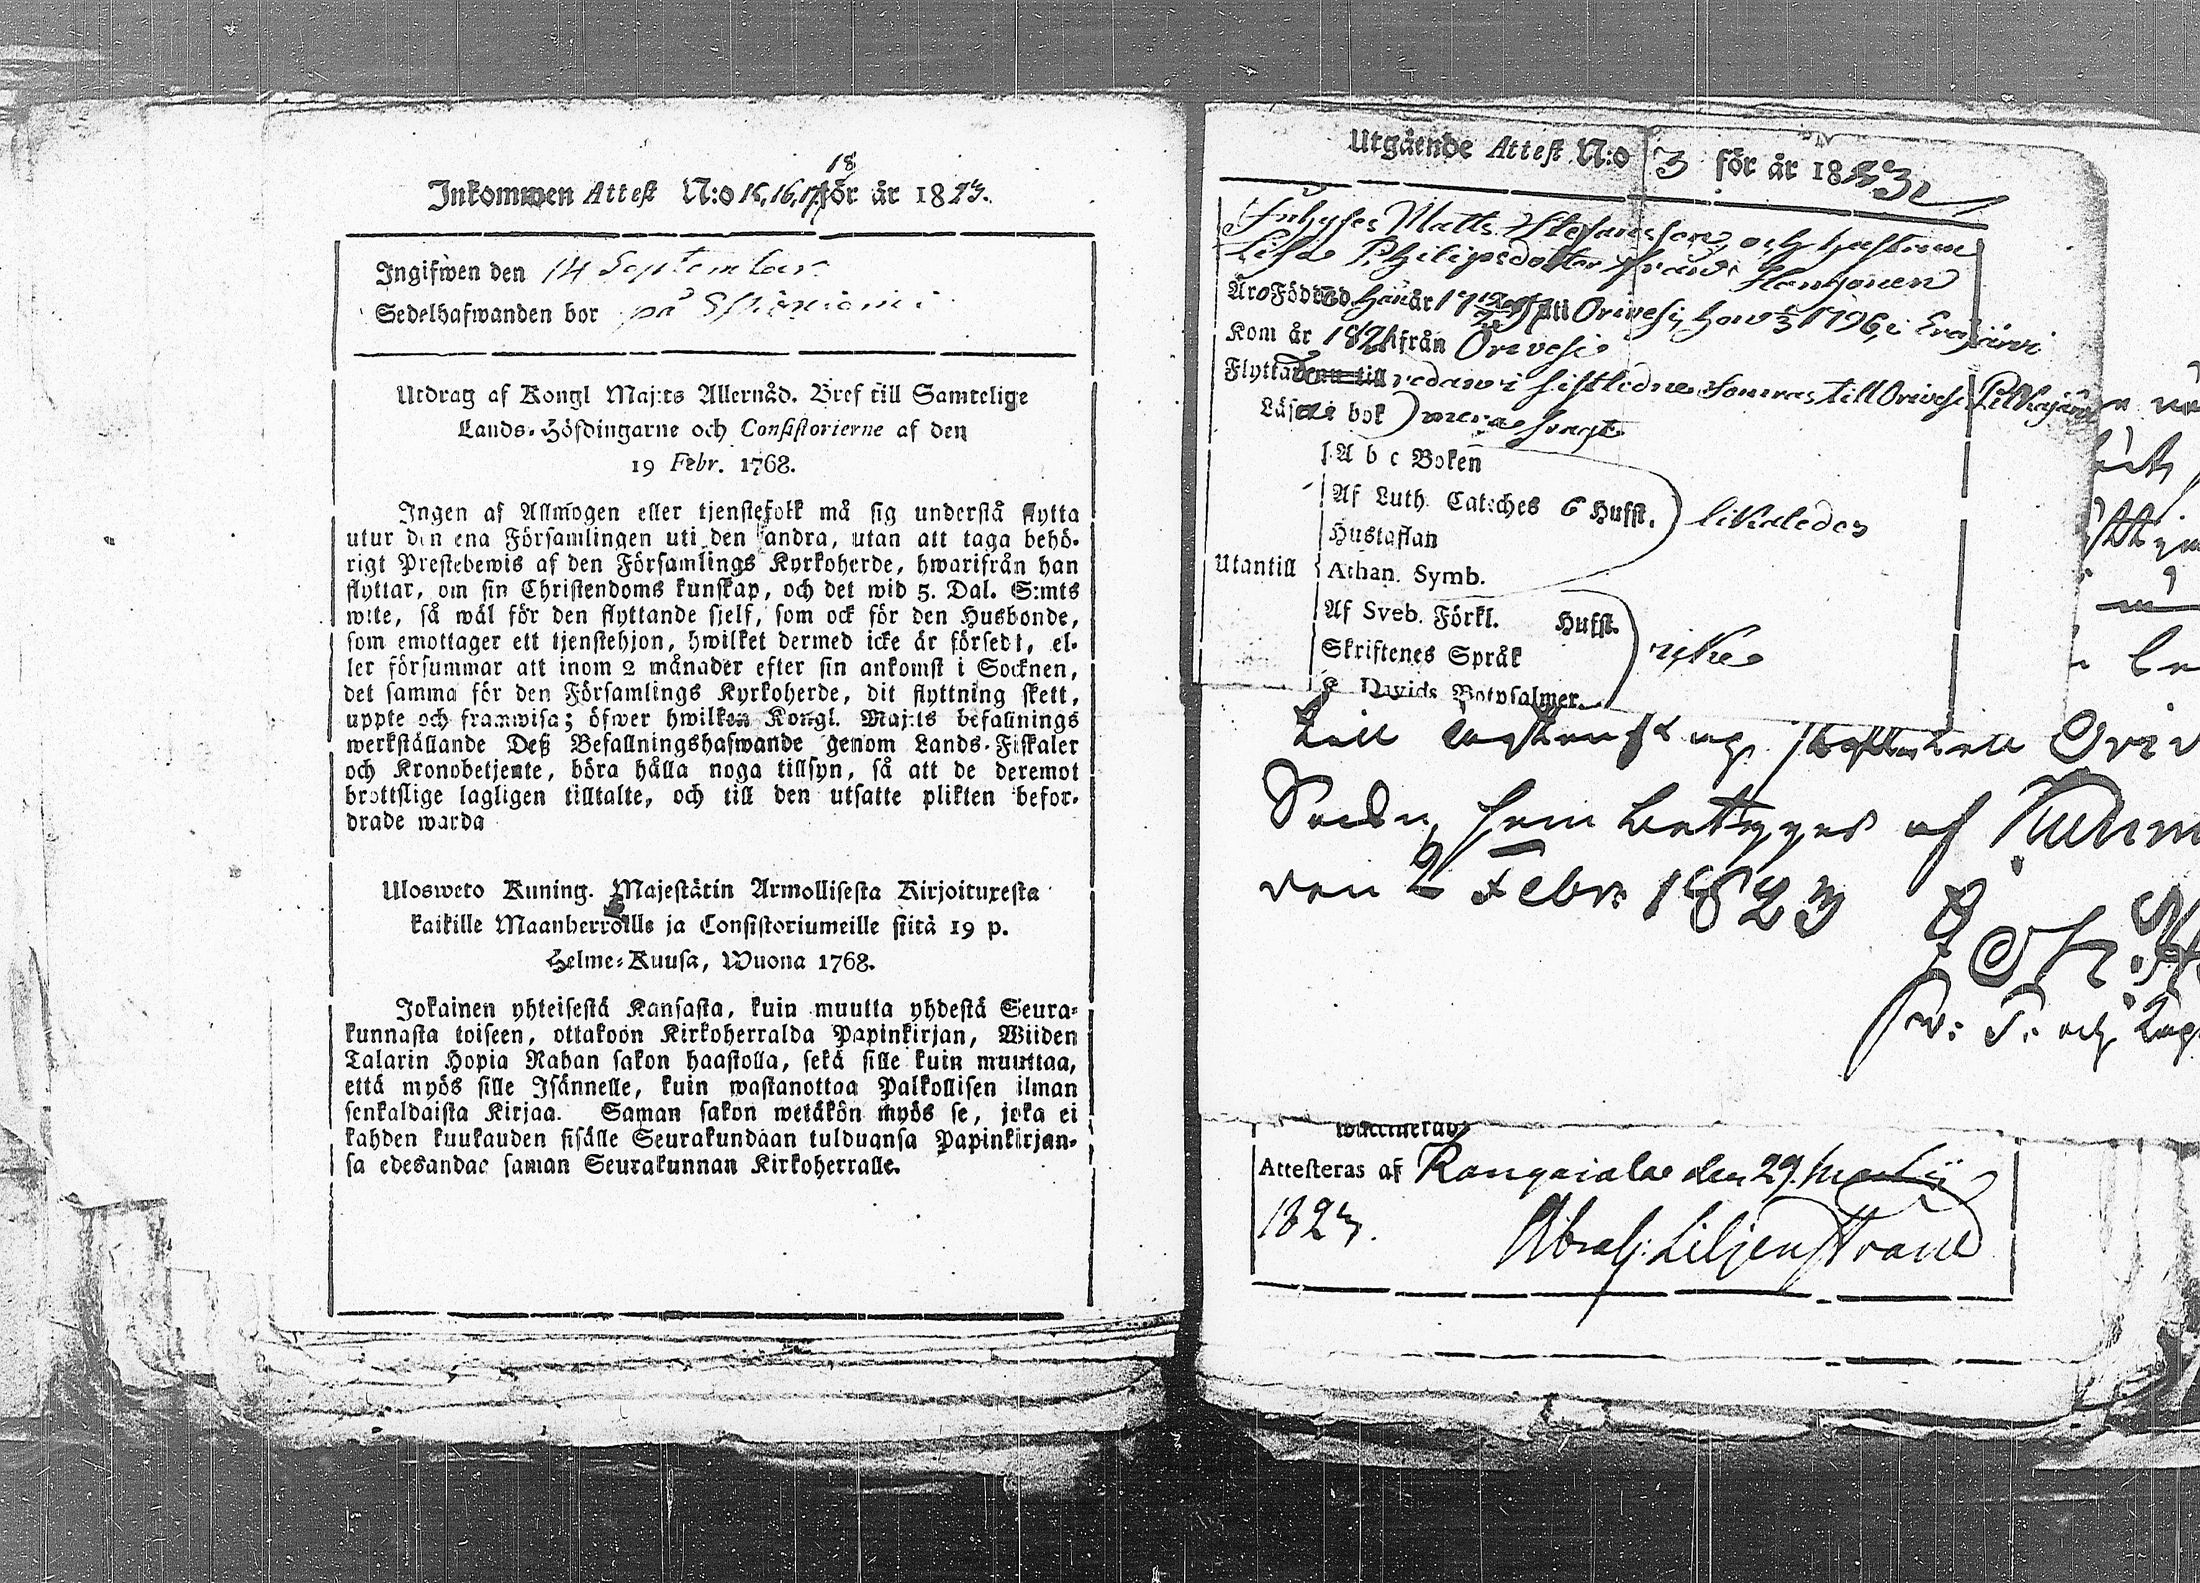 Inkommen Attest N:o 15, 16, 17, 18 för år 1823.
Ingifwen den 14 September
Sedelhafwanden bor på
Utdrag af Kongl Maj:ts Allernåd. Bref till Samtelige
Lands-Höfdingarne och Consistorierne af den
19 Febr. 1768.
Ingen af Allmogen eller tjenstefolk må sig understå flytta
utur den ena Församlingen uti den andra, utan att taga behö-
rigt Prestebewis af den Församlings Kyrkoherde, hwarifrån han
flyttar, om sin Christendoms kunskap, och det wid 5. Dal. S:mts
wite, så wäl för den flyttande sjelf, som ock för den Husbonde,
som emottager ett tjenstehjon, hwilket dermed icke är försedt, el-
ler försummar att inom 2 månader efter sin ankomst i Socknen,
det samma för den Församlings Kyrkoherde, dit flyttning skett,
uppte och framwisa; öfwer hwilken Kongl. Maj:ts befallnings
werkställande Deß Befallningshafwande genom Lands-Fiskaler
och Kronobetjente, böra hålla noga tillsyn, så att de deremot
brottslige lagligen tilltalte, och till den utsatte plikten befor-
drade warda
Ulosweto Kuning. Majestätin Armollisesta Kirjoituxesta
kaikille Maanherroille ja Consistoriumeille siitä 19 p.
Helme-Kuusa, Wuona 1768.
Jokainen yhteisestä Kansasta, kuin muutta yhdestä Seura-
kunnasta toiseen, ottakoon Kirkoherralda Papinkirjan, Wiiden
Talarin Hopia Rahan sakon haastolla, sekä sille kuin muuttaa,
että myös sille Isännelle, kuin wastanottaa Palkollisen ilman
senkaldaista Kirjaa. Saman sakon wetäkön myös se, joka ei
kahden kuukauden sisälle Seurakundaan tulduansa Papinkirjan-
sa edesandac saman Seurakunnan Kirkoherralle.
Utgående Attest N:o 3 för år 1823
Inhyses Matts Stefansson och hustrun
Lisa Philipsdotter från
Äro Födde han år 17 uti Orivesi, hon 1796 i Eräjärvi
Kom år 1821 från Orivesi
Flyttade redan i sistledne Sommar till Orivesi
Läser i bok
A b c Boken
Af Luth. Catsches 6 Hufst. likaledes
Hustaflan
Utantill Athan. Symb.
Af Sveb. Förkl. Hufst.
Skriftenes Språk
Davids Botpsalmer
till
Sockn, som betygges af
den 2 Febr 1823
Attesteras af Kangasala den 29. Martii
1823. Abrah: Liljenstrand